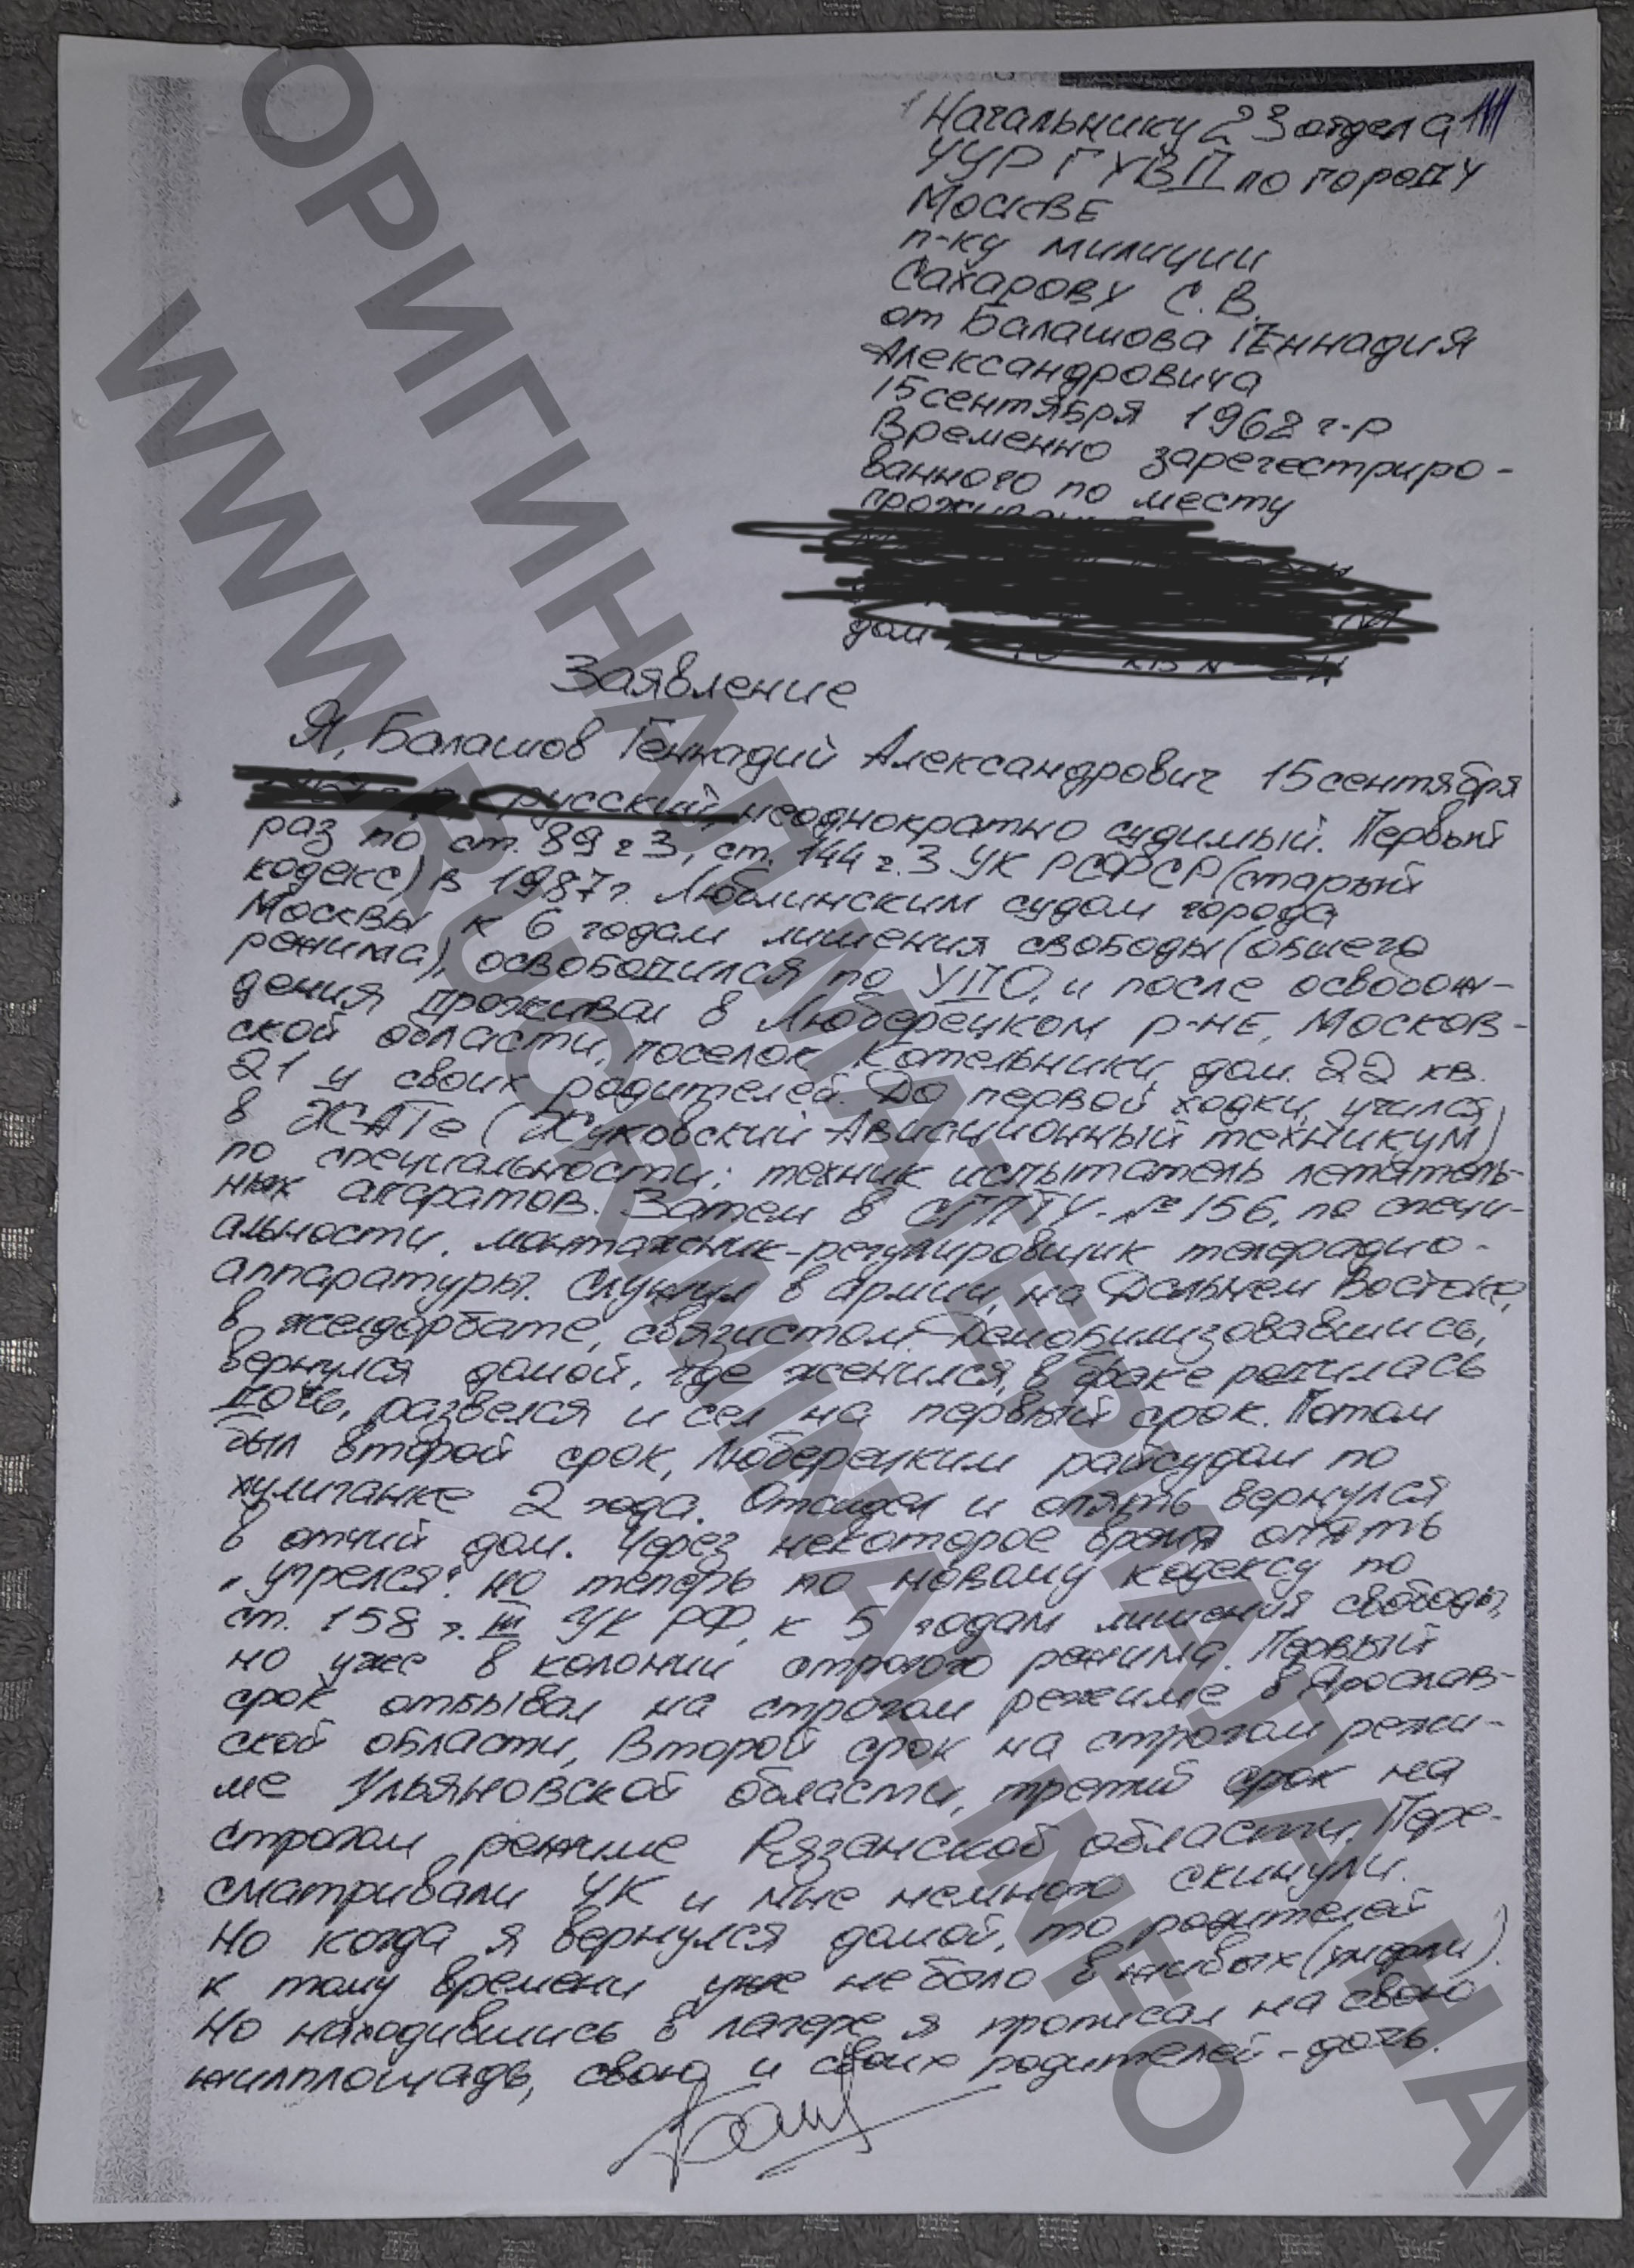 Начальнику 23 отдела
УУР ГУВД по городу
Москве
п-ку милиции
Сахарову С.В.
от Балашова Геннадия
Александровича
15 сентября 1962 г-р
Временно зарегестриро-
ванного по месту
дом
Заявление
Я, Балашов Геннадий Александрович 15 сентября
русский, неоднократно судимый. Первый
раз по ст. 89 ч 3, ст. 144 ч. 3 УК РСФСР (старый
кодекс) в 1987г. Люблинским судом города
Москвы к 6 годам лишения свободы (общего
режима), освободился по УДО, и после освобож-
дения проживал в Люберецком р-не, Москов-
ской области, поселок Котельники, дом. 22 кв.
21 у своих родителей. До первой ходки, учился
в ЖАТе (Жуковский Авиационный техникум)
по специальности: техник испытатель летатель-
ных апаратов. Затем в СПТУ-№156, по специ-
альности, монтажник-регулировщик телерадио-
аппаратуры. Служил в армии, на Дальнем Востоке,
в желдорбате, связистом. Демобилизовавшись,
вернулся домой, где женился, в браке родилась
дочь, развелся и сел на первый срок. Потом
был второй срок, Люберецким райсудом по
хулиганке 2 года. Отсидел и опять вернулся
в отчий дом. Через некоторое время опять
"угрелся". но теперь по новому кодексу по
ст. 158 ч. III УК РФ, к 5 годам лишения свободы,
но уже в колонии строгого режима. Первый
срок отбывал на строгом режиме в Ярослав-
ской области, Второй срок на строгом режи-
ме Ульяновской области, третий срок на
строгом режиме Рязанской области. Пере-
сматривали УК и мне немного скинули.
Но когда я вернулся домой, то родителей
к тому времени уже не было в живых
Но находившись в лагере я прописал на свою
жилплощадь, свою и своих родителей - дочь.
ОРИГИНАЛ МАТЕРИАЛА НА
WWW.RUCRIMINAL.INFO